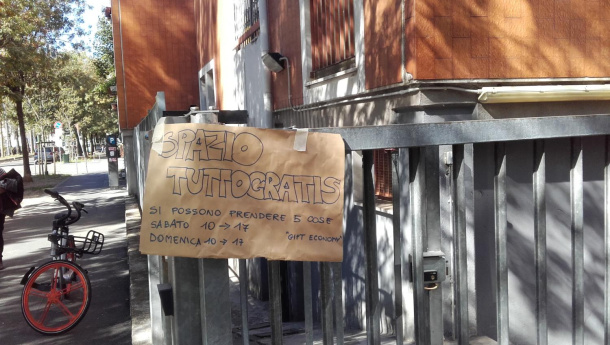 SPAZIO
TUTTOGRATIS
SI POSSONO PRENDERE 5 COSE
SABATO 10→17
DOMENICA 10→17 "GIFT ECONOMY"